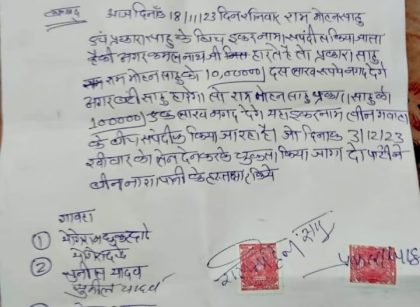 आज दिनाँक 18/11/23 दिन शनिवार राम मोहन साहु
एवं प्रकाश साहु के बिच इकरारनामा संपादित किया जाता
है की अगर कमलनाथ जी हारते है तो प्रकाश साहु
राम मोहन साहु को 10,00000) दस लाख रुपये नगद देंगे
अगर बंटी साहु हारेगा तो राम मोहन साहु प्रकाश साहु को
100000) एक लाख नगद देंगे यह इकरारनामा तीन गवाहो
के बीच संपादित किया जा रहा है। जो दिनांक 3/12/23
रवीवार को लेन देन करके किया जाएगा दो पार्टी ने
तीन के हस्ताक्षर किये
गवाह
①
②
सुनील यादव
राम मोहन साहु
प्रकाश साहु